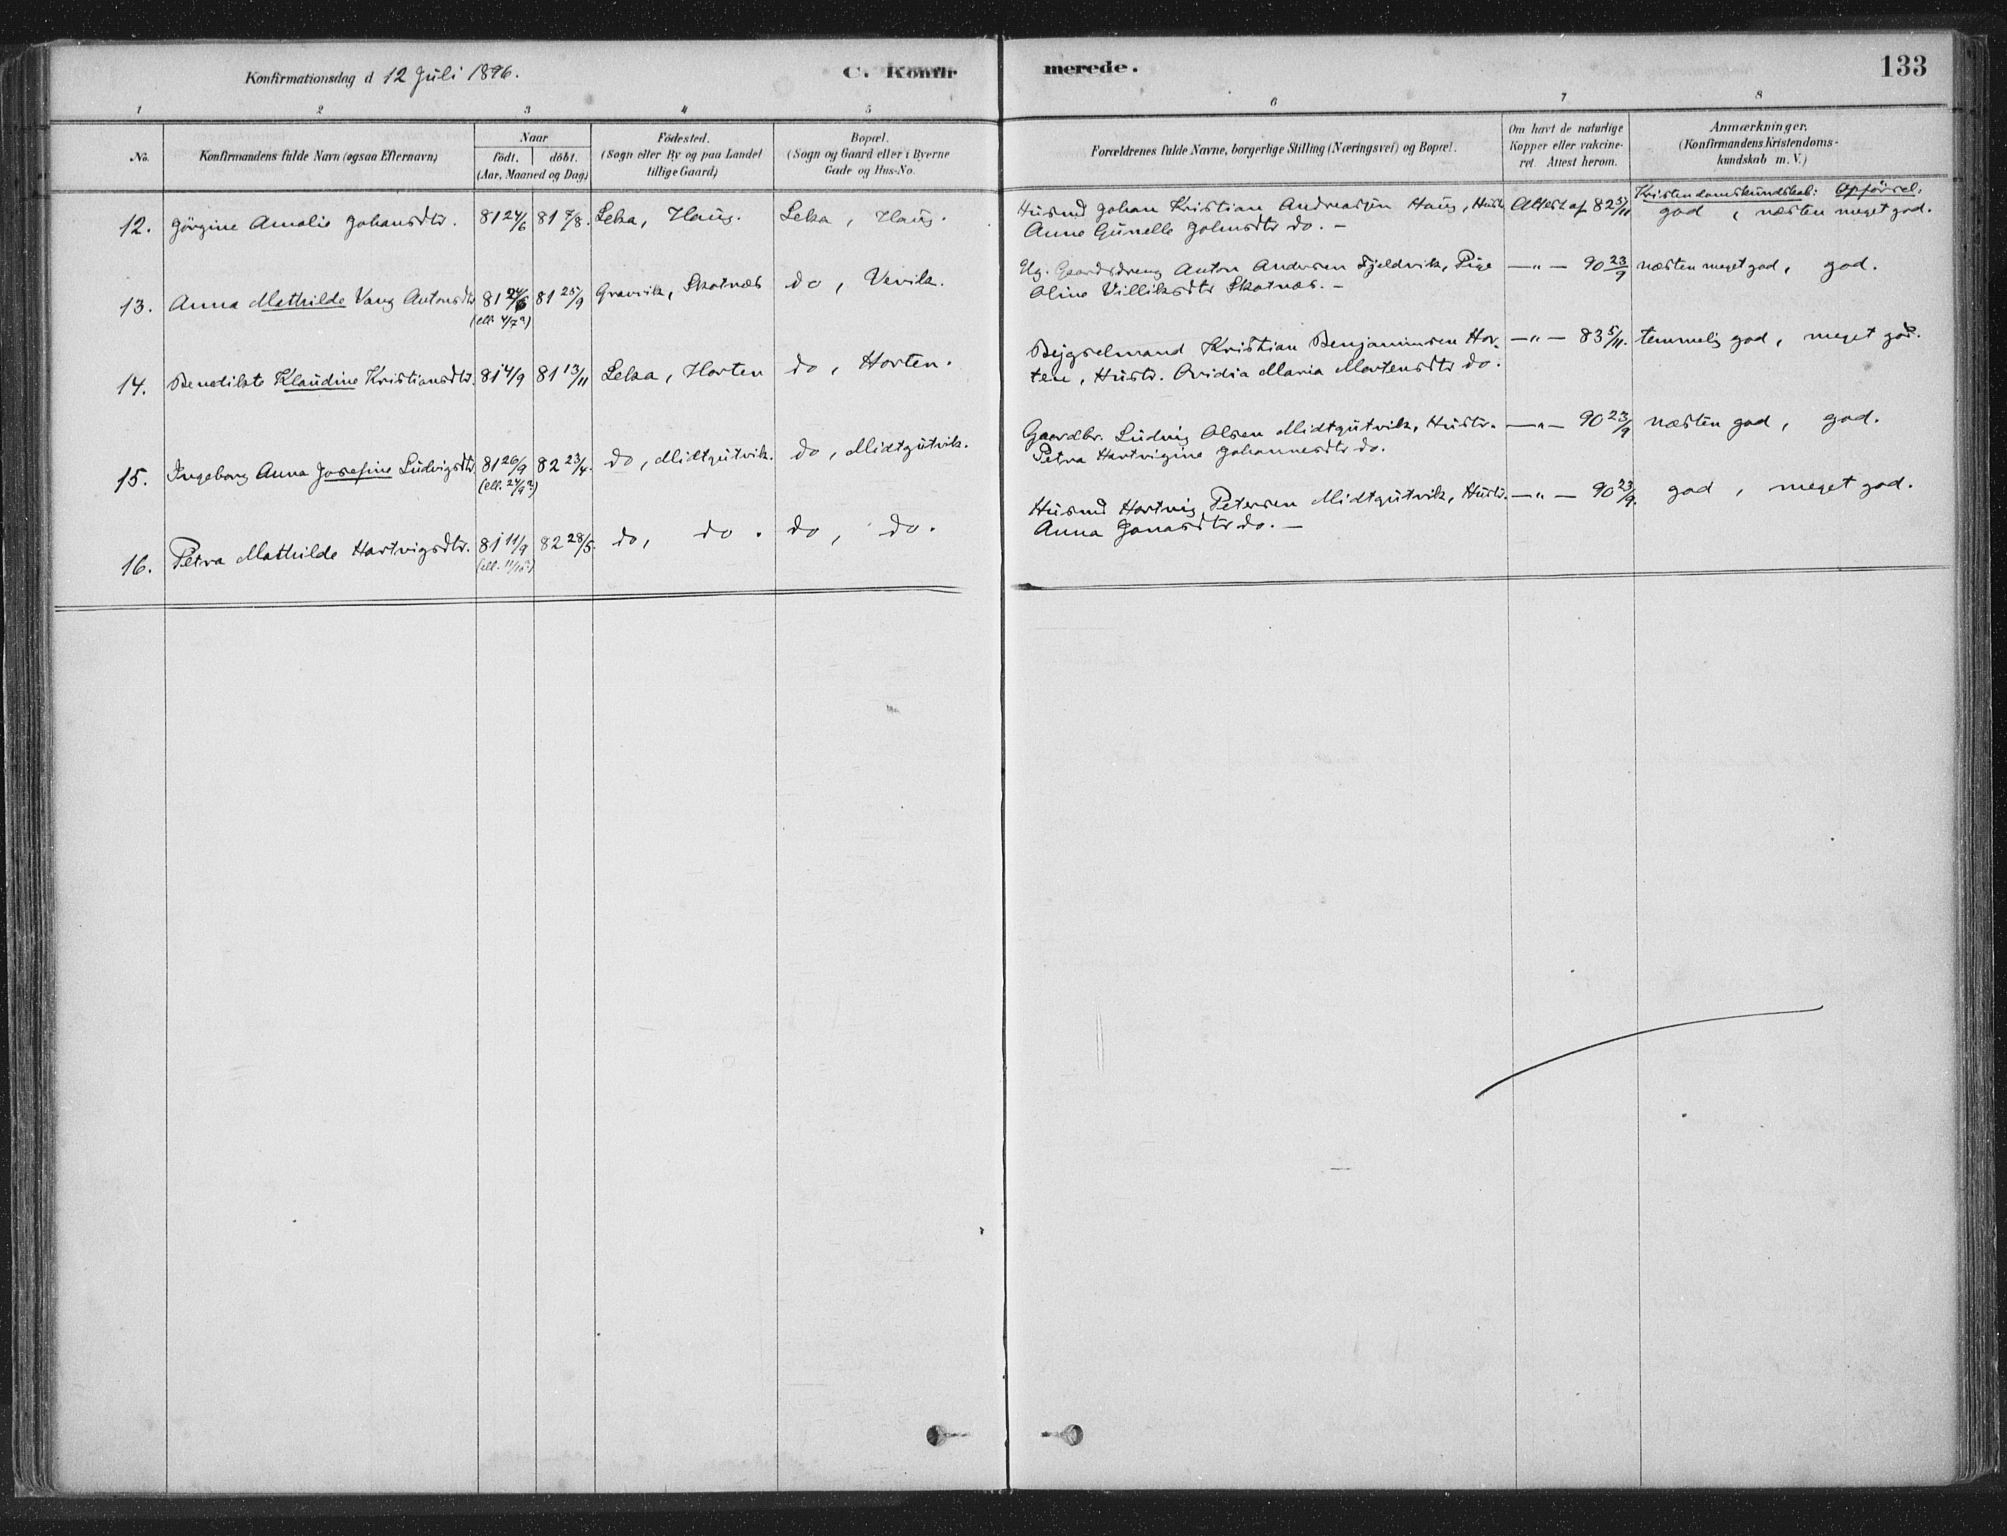 Konfirmationsdag d 12 Juli 1896.
C. Konfirmerede.
133
1 2 3 4 5 6 7 8
No.
Konfirmandens fulde Navn (ogsaa Efternavn)
Naar
födt. döbt.
(Aar, Maaned og Dag)
Födested.
(Sogn eller By og paa Landet
tillige Gaard)
Bopæl.
(Sogn og Gaard eller i Byerne
Gade og Hus-No.
Forældrenes fulde Navne, borgerlige Stilling (Næringsvei) og Bopæl.
Om havt de naturlige
Kopper eller vakcine-
ret. Attest herom.
Anmærkninger.
(Konfirmandens Kristendoms-
kundskab m. V.)
Kristendomskundskab: Opförsel.
12. Jörgine Amalie Johansdtr. 81 24/6 81 7/8. Leka, Haug. Leka, Haug.
Husmd Johan Kristian Andreassen Haug, Hustr. Attest af 82 5/11 god, næsten meget god.
Anne Gunelle Johnsdtr do. —
13. Anna Mathilde Vang Antonsdtr 81 24/6 81 25/9 Gravvik, Skotnæs do, Vevik.
(ell. 4/7?)
Ug. Gaardsdreng Anton Andersen Fjeldvik, Pige —"— 90 23/9 næsten meget god, god.
Oline Villiksdtr Skotnæs. —
14. Benedikte Klaudine Kristiansdtr. 81 4/9 81 13/11 Leka, Horten do, Horten.
Bejgselmand Kristian Benjaminsen Hor- —"— 83 5/11. temmelig god, meget god.
ten, Hustr. Ovidia Maria Mortensdtr do.
15. Ingeborg Anna Josefine Ludvigsdtr 81 26/9 82 23/4. do, Midtgutvik. do, Midtgutvik.
(ell. 24/9?)
Gaardbr. Ludvig Olsen Midtgutvik, Hustr. —"— 90 23/9 næsten god, god.
Petra Hartvigine Johannesdtr do.
16. Petra Mathilde Hartvigsdtr. 81 11/9 82 28/5. do, do. do, do.
(ell. 11/10?)
Husmd Hartvig Petersen Midtgutvik, Hustr. —"— 90 23/9. god, meget god.
Anna Jonasdtr do. —